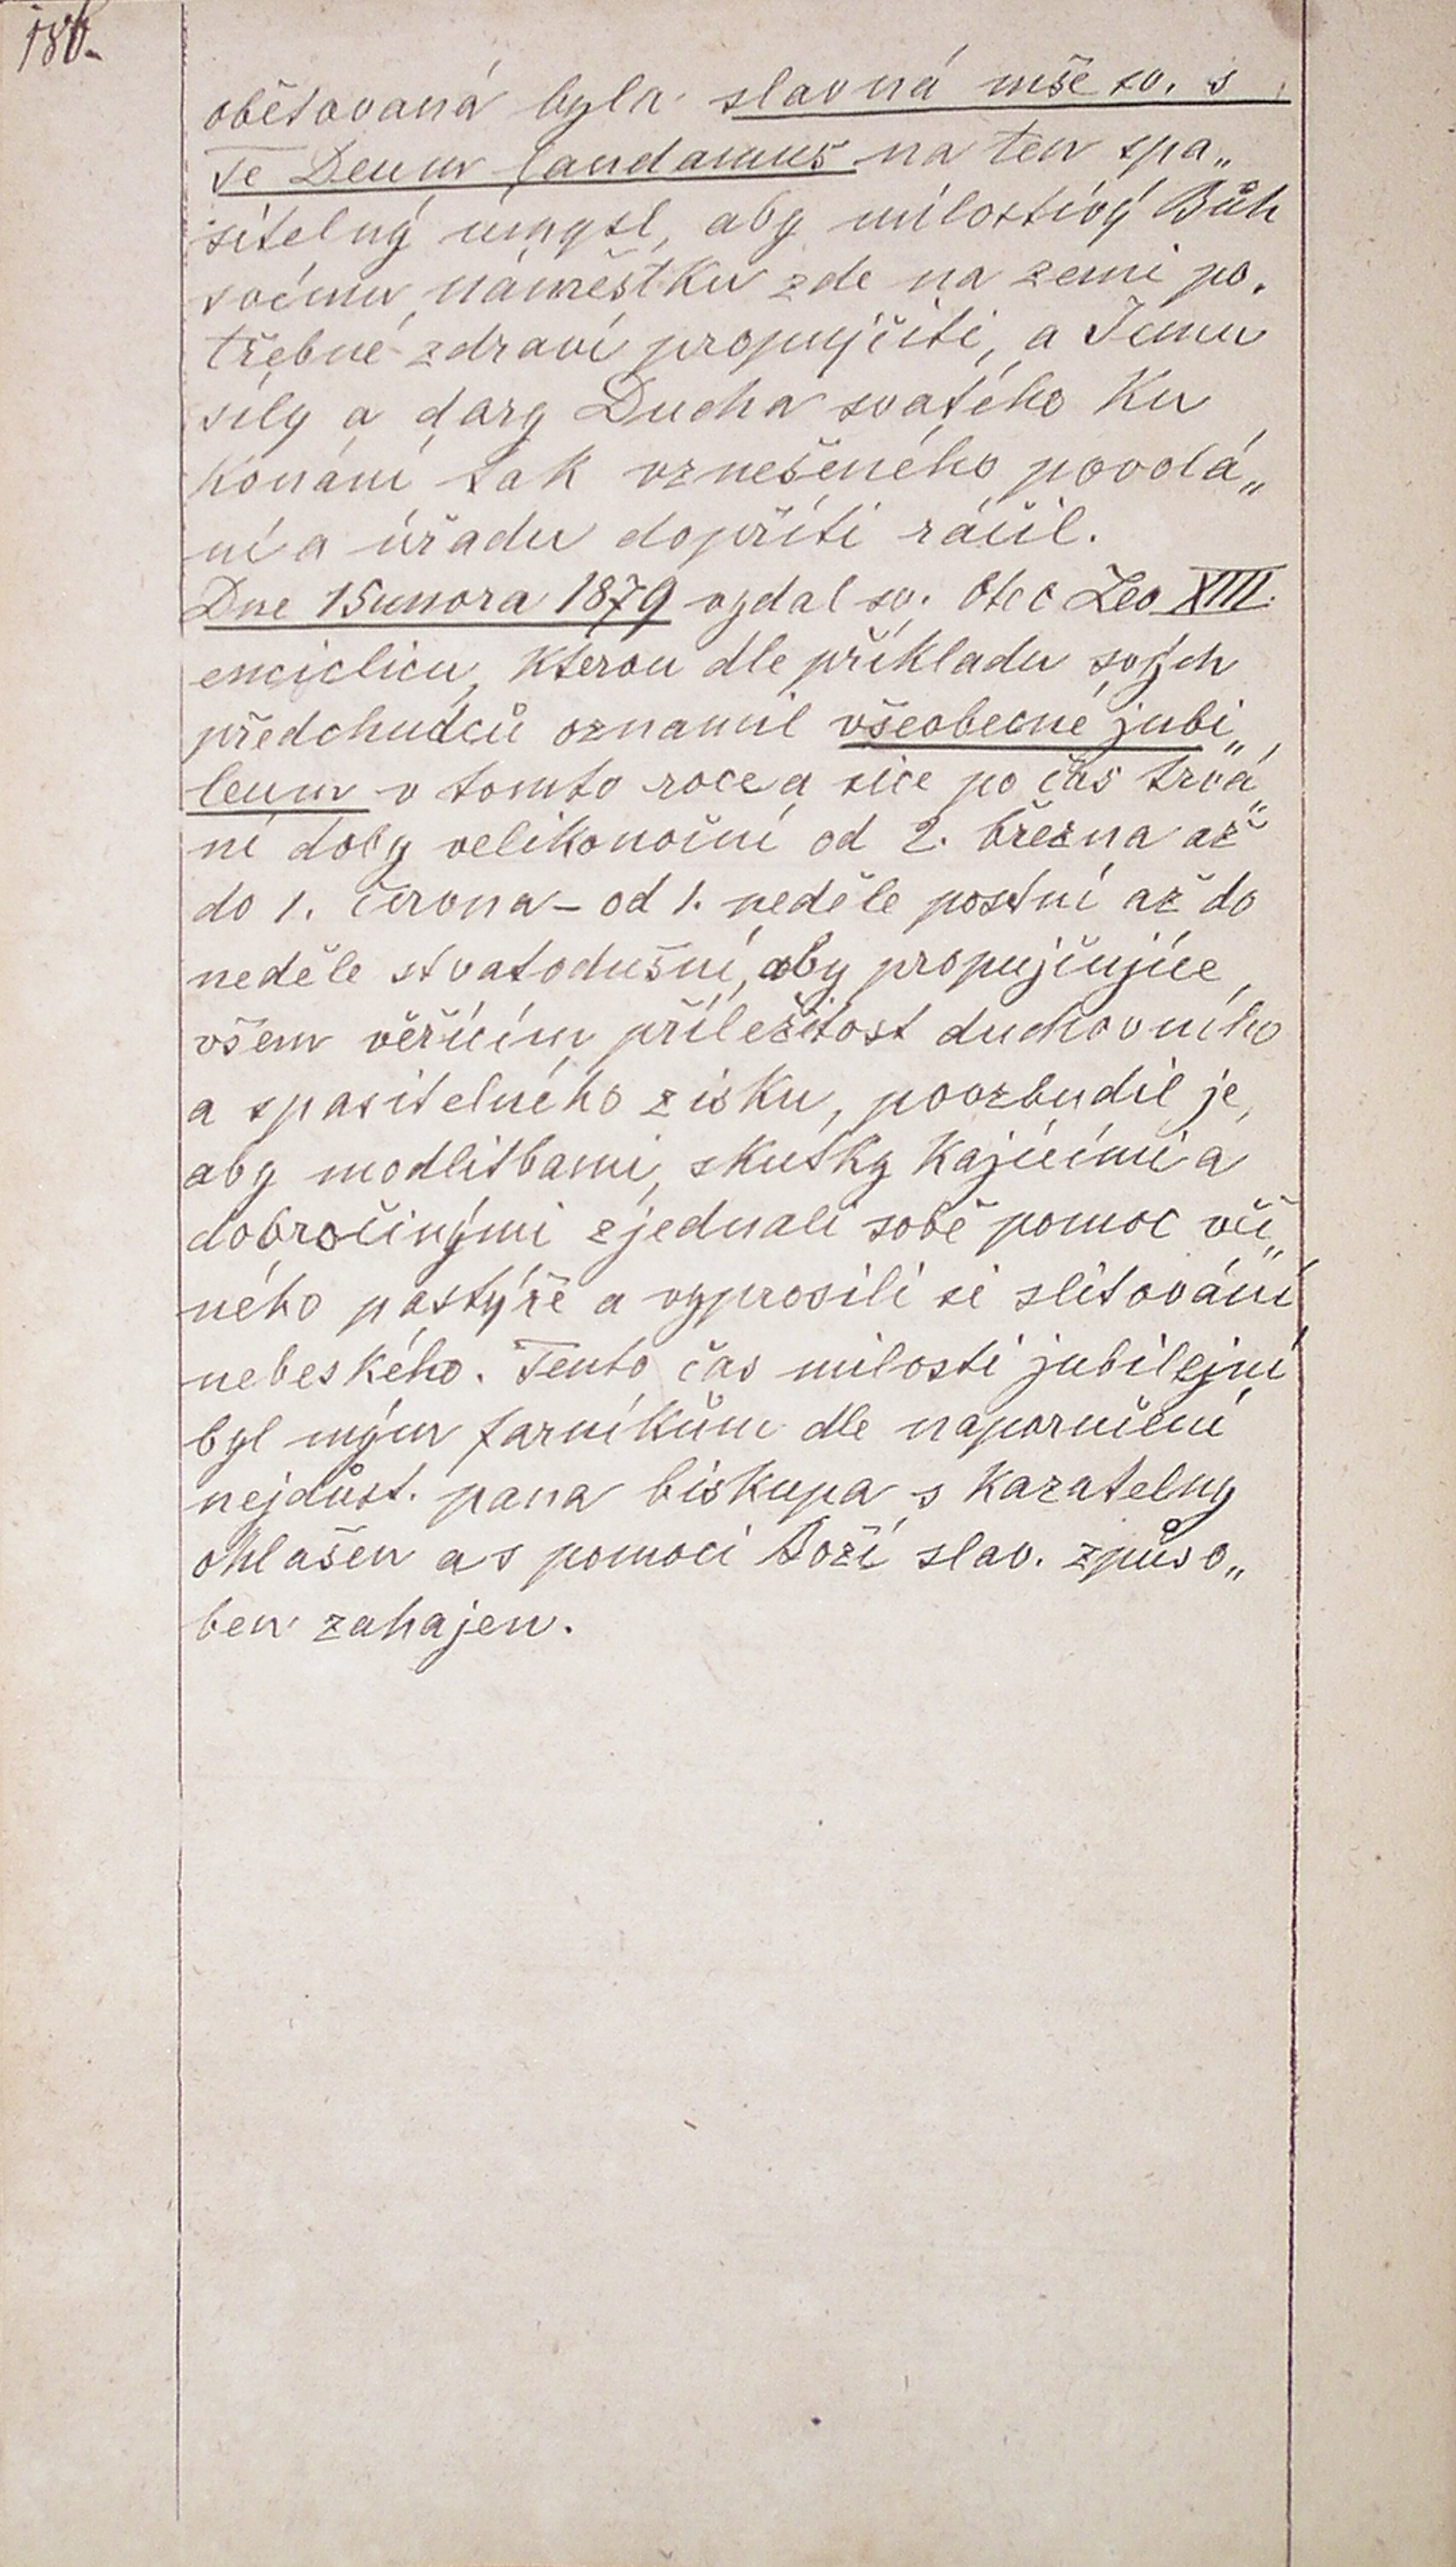 186.
obětovaná byla slavná mše sv. s
Te Deum laudamus na ten spa„
sitelný úmysl, aby milostivý Bůh
svému náměstku zde na zemi po„
třebné zdraví propujčiti, a Jemu
síly a dary Ducha svatého ku
konání tak vznešeného povolá„
ní a úřadu dopříti ráčil.
Dne 15 unora 1879 vydal sv. Otec Leo XIII.
encicliku, kterou dle příkladu svých
předchudců oznamil všeobecné jubi„
leum v tomto roce a sice po čas trvá„
ní doby velikonoční od 2. března až
do 1. června – od 1. neděle postní až do
neděle svatodušní, aby propujčujíce
všem věřícím příležitost duchovního
a spasitelného zisku, povzbudil je,
aby modlitbami, skutky kajícími a
dobročinými zjednali sobě pomoc věč„
ného pastýře a vyprosili si slitování
nebeského. Tento čas milosti jubilejní
byl mým farníkům dle naporučení
nejdůst. pana biskupa s kazatelny
ohlašen a s pomocí Boží slav. způso„
bem zahajen.